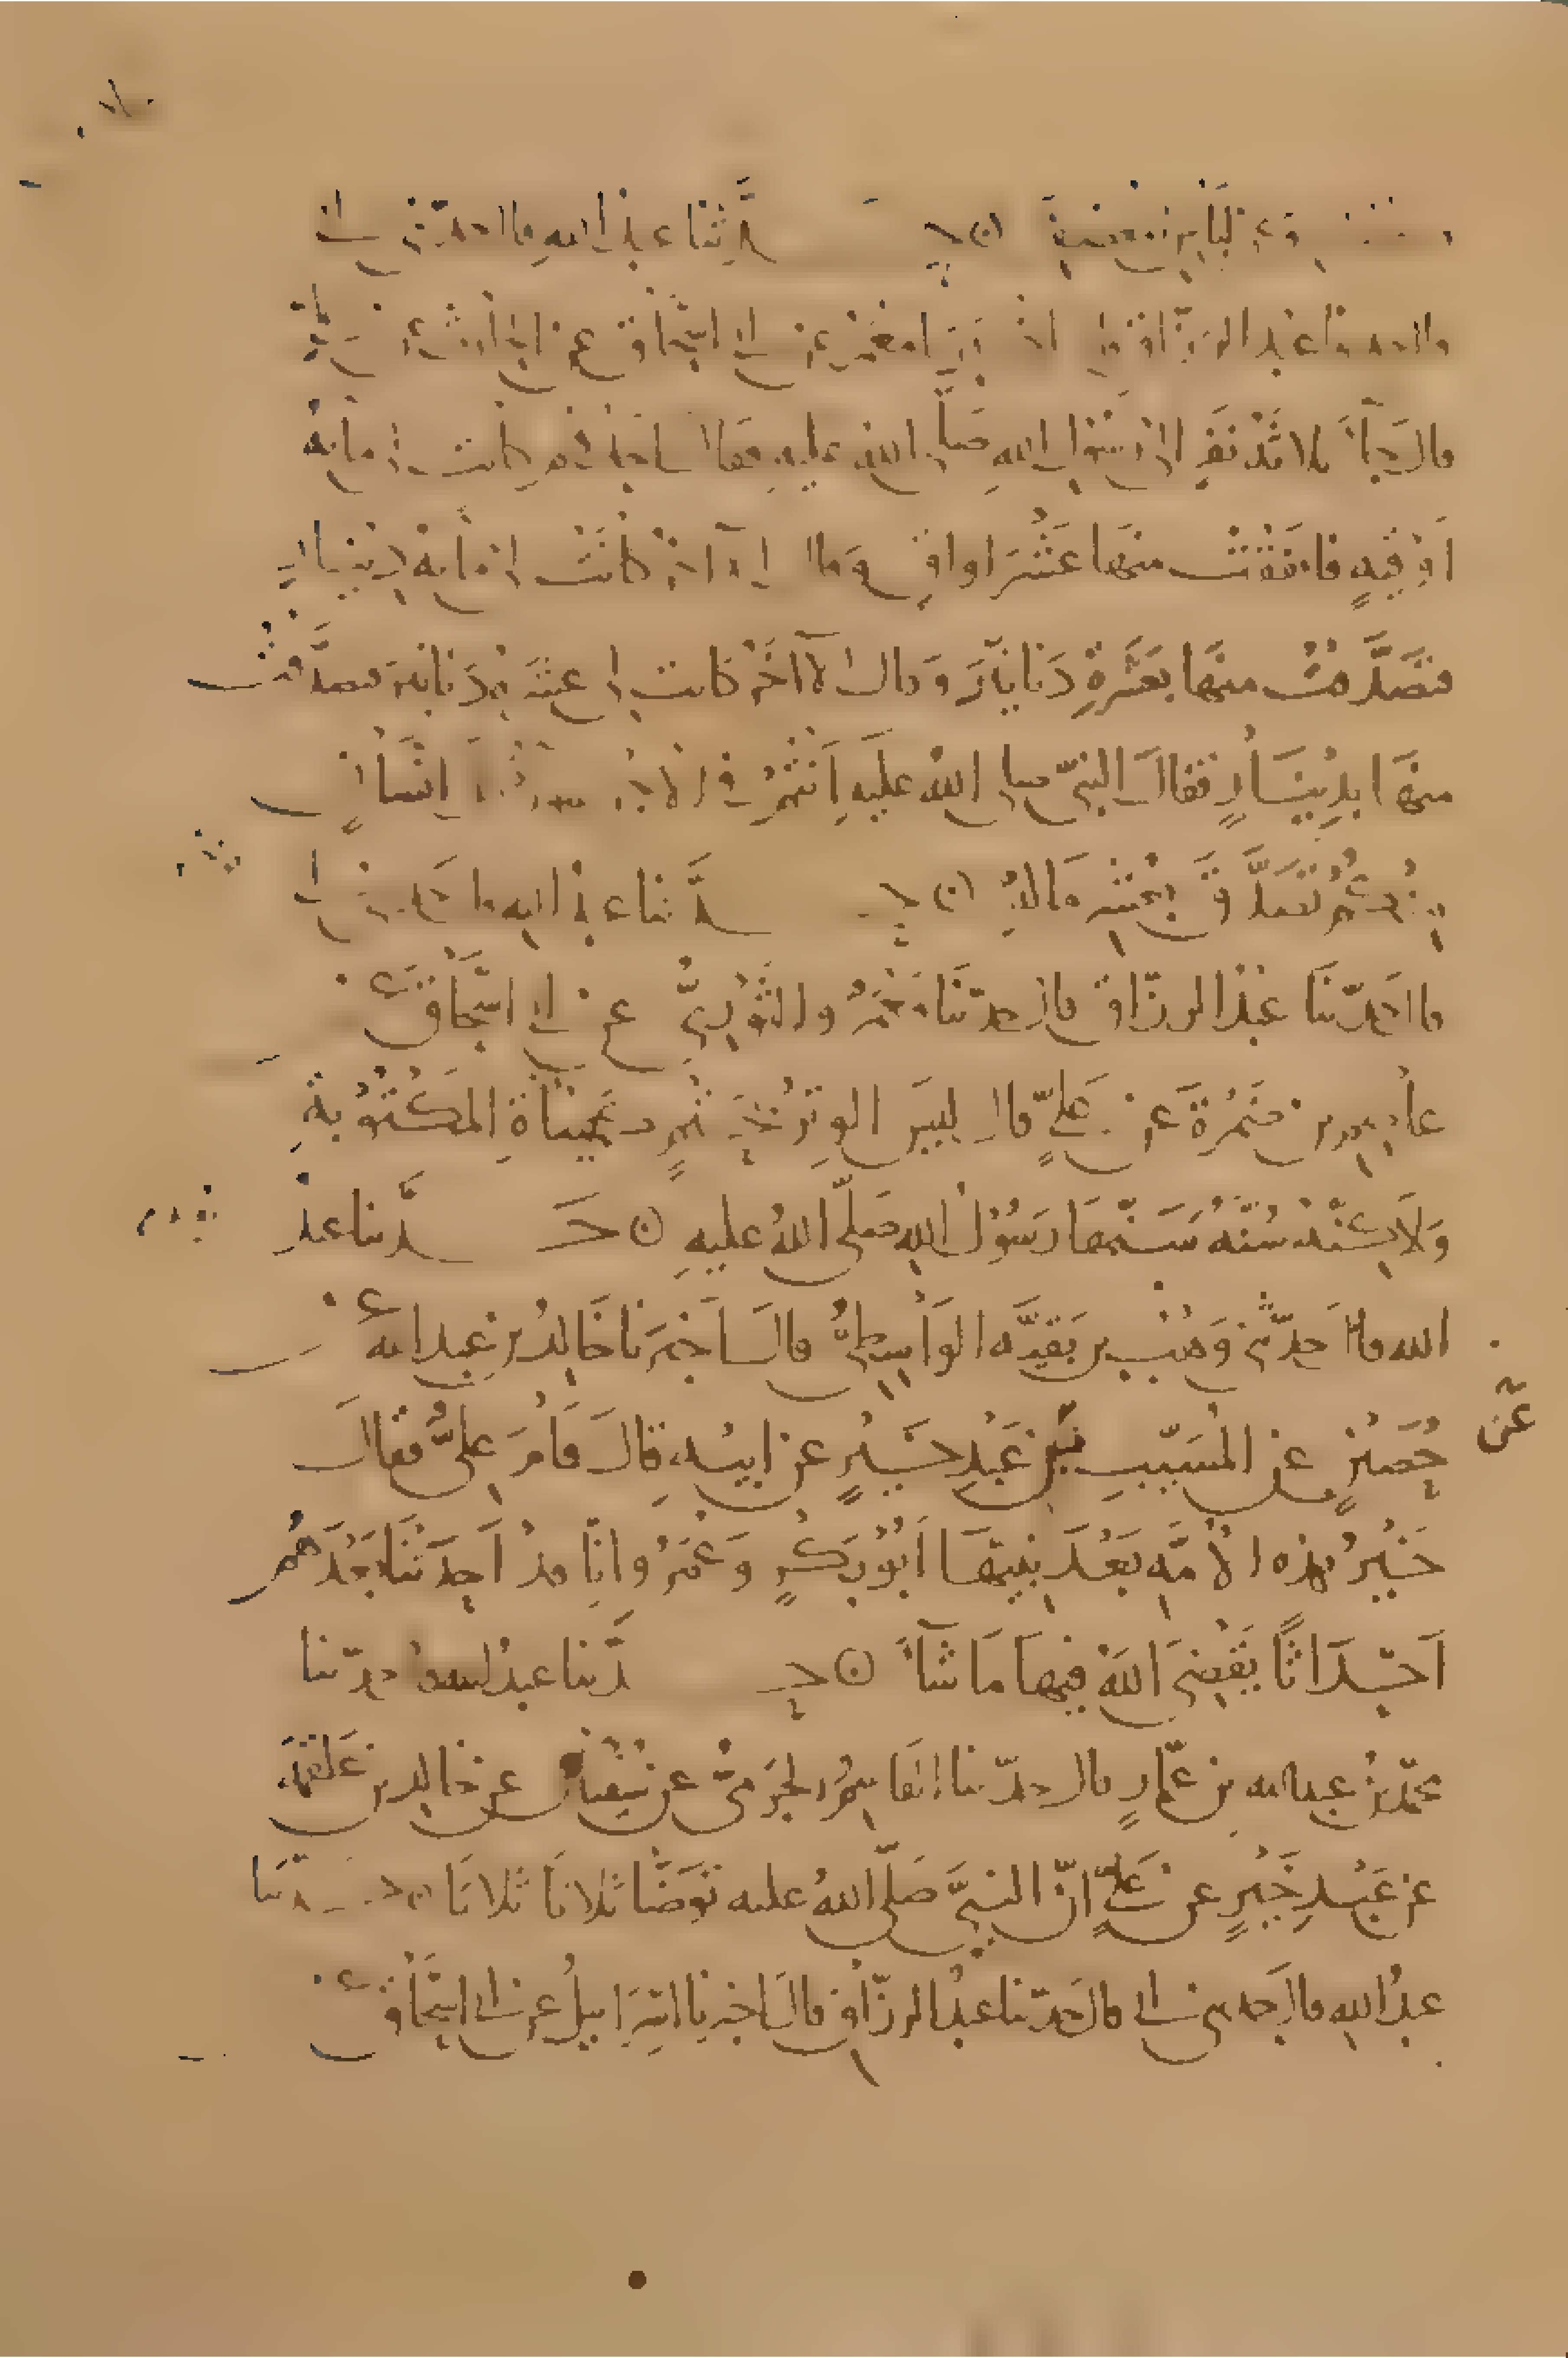 حدثنا عبد الله قال حدثني ابي
عبد الرزاق قال اخبرنا معمر عن ابي اسحاق عن الحارث عن علي
قال جآء ثلاثة نفر الى رسول الله صلى الله عليه فقال احدهم كانت لي مائة
اوقية فانفقت منها عشر اواق وقال الآخر كانت لي مائة دينار
فتصدقت منها بعشرة دنانير وقال الآخر كانت لي عشرة دنانير فتصدقت
منها بدينار فقال النبي صلى الله عليه انتم في الاجر انسان
منكم تصدق بعشر ماله حدثنا عبد الله قال حدثني ابي
قال حدثنا عبد الرزاق قال حدثنا معمر والثوري عن ابي اسحاق عن
عاصم بن ضمرة عن علي قال ليس الوتر بحتم كهيئاة المكتوبة
ولاكنه سنة سنها رسول الله صلى الله عليه ⊙ حدثنا عبد
الله قال حدثني وهب بن بقية الواسطي قال اخبرنا خالد بن عبد الله عن
عن
حصين عن المسيب بن عبد خير عن ابيه قال قام علي فقال
خير هذه الامة بعد نبيها ابو بكر وعمر وانا قد احدثنا بعدهم
احداثا يقضي الله فيها ما شآء ⊙ حدثنا عبد الله حدثنا
محمد بن عبد الله بن عمار قال حدثنا القاسم الجرمي عن سفيان عن خالد بن علقمة
عن عبد خير عن علي ان النبي صلى الله عليه توضا ثلاثا ثلاثا حدثنا
عبد الله قال حدثني ابي قال حدثنا عبد الرزاق قال اخبرنا اسرايل عن ابي اسحاق عن